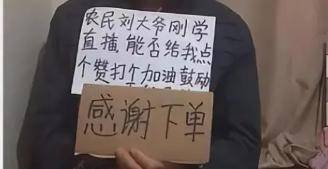 农民刘大爷刚学
直播能否给我点
个赞打个加油鼓励
感谢下单